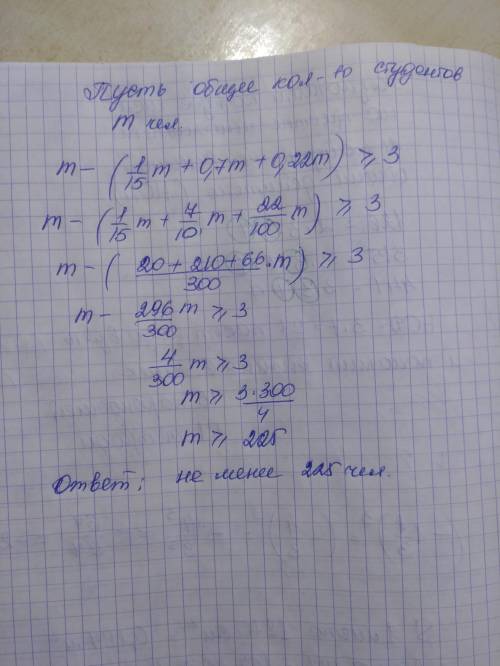 Пусть общее кол-во студентов
m чел.
m - (1/15 m + 0,7m + 0,22m) ⩾ 3
m - (1/15 m + 7/10 m + 22/100 m) ⩾ 3
m - (20 + 210 + 66/300 · m) ⩾ 3
m - 296/300 m ⩾ 3
4/300 m ⩾ 3
m ⩾ 3·300/4
m ⩾ 225
Ответ: не менее 225 чел.